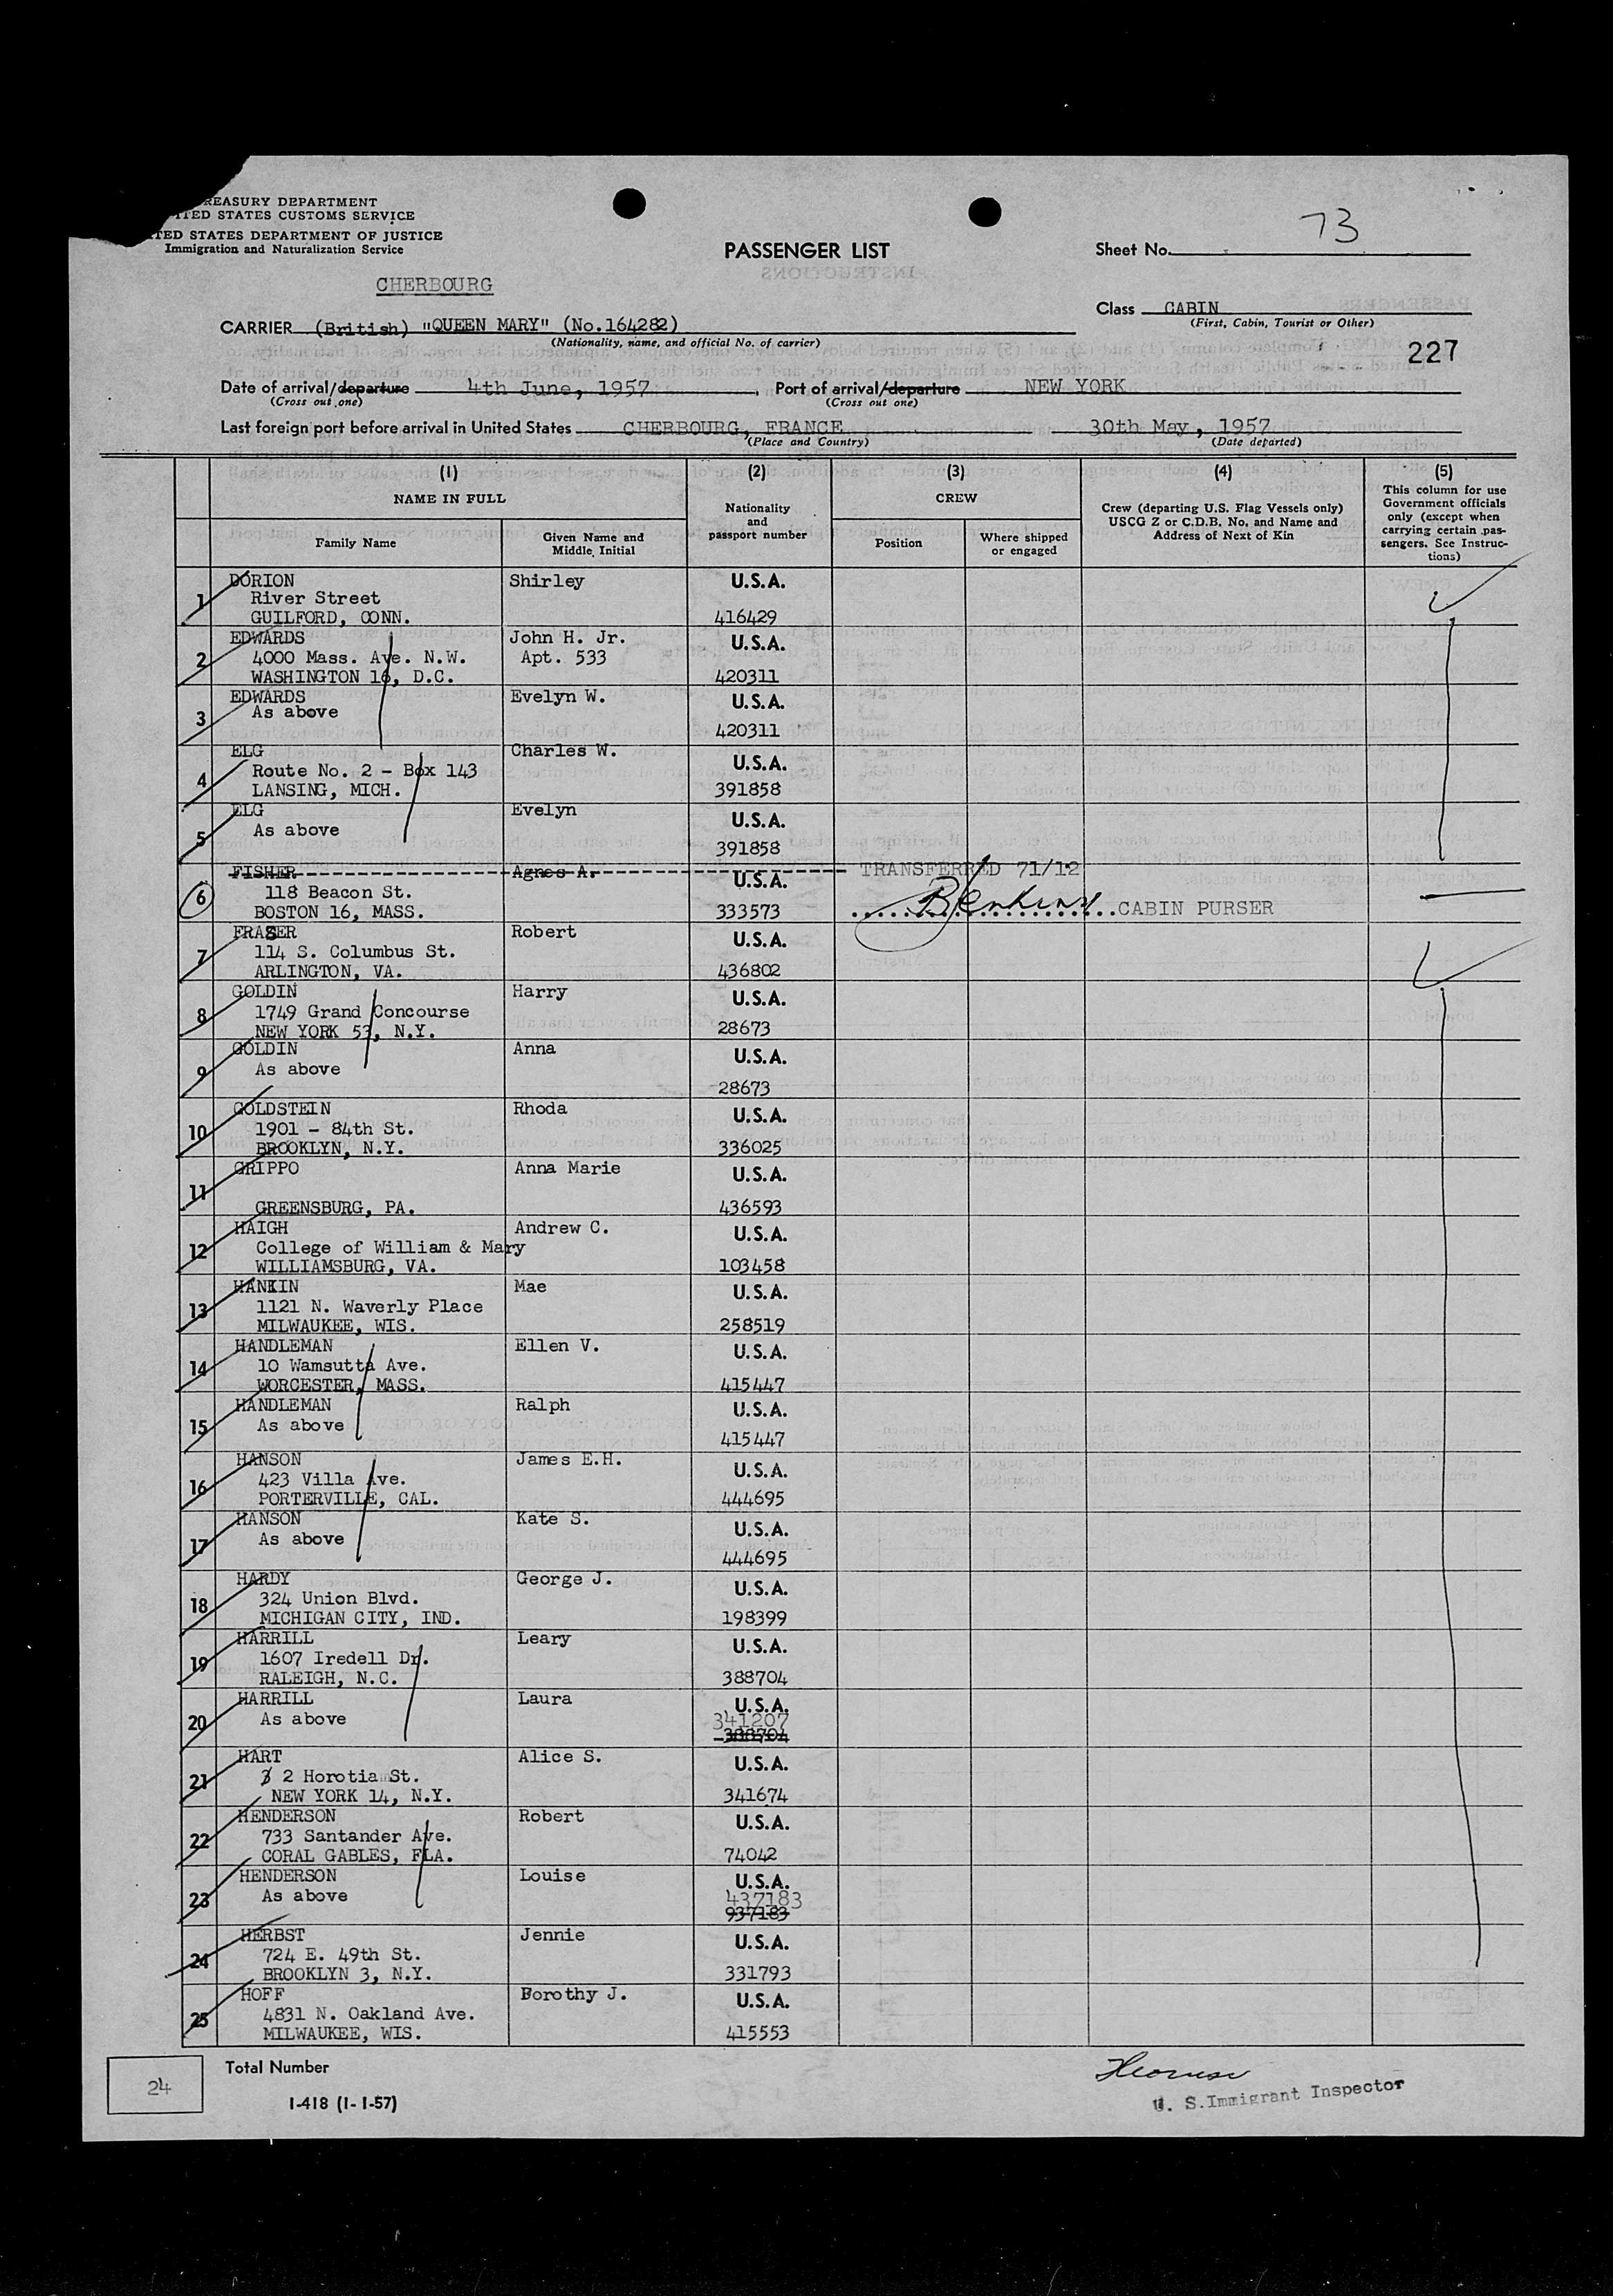 REASURY DEPARTMENT
ITED STATES CUSTOMS SERVICE
TED STATES DEPARTMENT OF JUSTICE
Immigration and Naturalization Service
PASSENGER LIST
Sheet No. 73
CHERBOURG
Class CABIN
(First, Cabin, Tourist or Other)
CARRIER (British) "QUEEN MARY" (No.164282)
(Nationality, name, and official No. of carrier)
227
Date of arrival/departure 4th June, 1957. Port of arrival/departure NEW YORK
(Cross out one) (Cross out one)
Last foreign port before arrival in United States CHERBOURG, FRANCE 30th May, 1957
(Place and Country) (Date departed)
(1) (2) (3) (4) (5)
NAME IN FULL
Family Name
Given Name and
Middle Initial
Nationality
and
passport number
CREW
Position
Where shipped
or engaged
Crew (departing U.S. Flag Vessels only)
USCG Z or C.D.B. No. and Name and
Address of Next of Kin
This column for use
Government officials
only (except when
carrying certain pas-
sengers. See Instruc-
tions)
1 DORION Shirley U.S.A.
River Street
GUILFORD, CONN. 416429
2 EDWARDS John H. Jr. U.S.A.
4000 Mass. Ave. N.W. Apt. 533
WASHINGTON 16, D.C. 420311
3 EDWARDS Evelyn W. U.S.A.
As above
420311
4 ELG Charles W. U.S.A.
Route No. 2 - Box 143
LANSING, MICH. 391858
5 ELG Evelyn U.S.A.
As above
391858
6 FISHER Agnes A. U.S.A. TRANSFERRED 71/12
118 Beacon St.
BOSTON 16, MASS. 333573 CABIN PURSER
7 FRASER Robert U.S.A.
114 S. Columbus St.
ARLINGTON, VA. 436802
8 GOLDIN Harry U.S.A.
1749 Grand Concourse
NEW YORK 53, N.Y. 28673
9 GOLDIN Anna U.S.A.
As above
28673
10 GOLDSTEIN Rhoda U.S.A.
1901 - 84th St.
BROOKLYN, N.Y. 336025
11 GRIPPO Anna Marie U.S.A.
GREENSBURG, PA. 436593
12 HAIGH Andrew C. U.S.A.
College of William & Mary
WILLIAMSBURG, VA. 103458
13 HANKIN Mae U.S.A.
1121 N. Waverly Place
MILWAUKEE, WIS. 258519
14 HANDLEMAN Ellen V. U.S.A.
10 Wamsutta Ave.
WORCESTER, MASS. 415447
15 HANDLEMAN Ralph U.S.A.
As above
415447
16 HANSON James E.H. U.S.A.
423 Villa Ave.
PORTERVILLE, CAL. 444695
17 HANSON Kate S. U.S.A.
As above
444695
18 HARDY George J. U.S.A.
324 Union Blvd.
MICHIGAN CITY, IND. 198399
19 HARRILL Leary U.S.A.
1607 Iredell Dr.
RALEIGH, N.C. 388704
20 HARRILL Laura U.S.A.
As above 341207
388704
21 HART Alice S. U.S.A.
2 Horotia St.
NEW YORK 14, N.Y. 341674
22 HENDERSON Robert U.S.A.
733 Santander Ave.
CORAL GABLES, FLA. 74042
23 HENDERSON Louise U.S.A.
As above 437183
937183
24 HERBST Jennie U.S.A.
724 E. 49th St.
BROOKLYN 3, N.Y. 331793
25 HOFF Dorothy J. U.S.A.
4831 N. Oakland Ave.
MILWAUKEE, WIS. 415553
24 Total Number
I-418 (1-1-57)
U. S. Immigrant Inspector